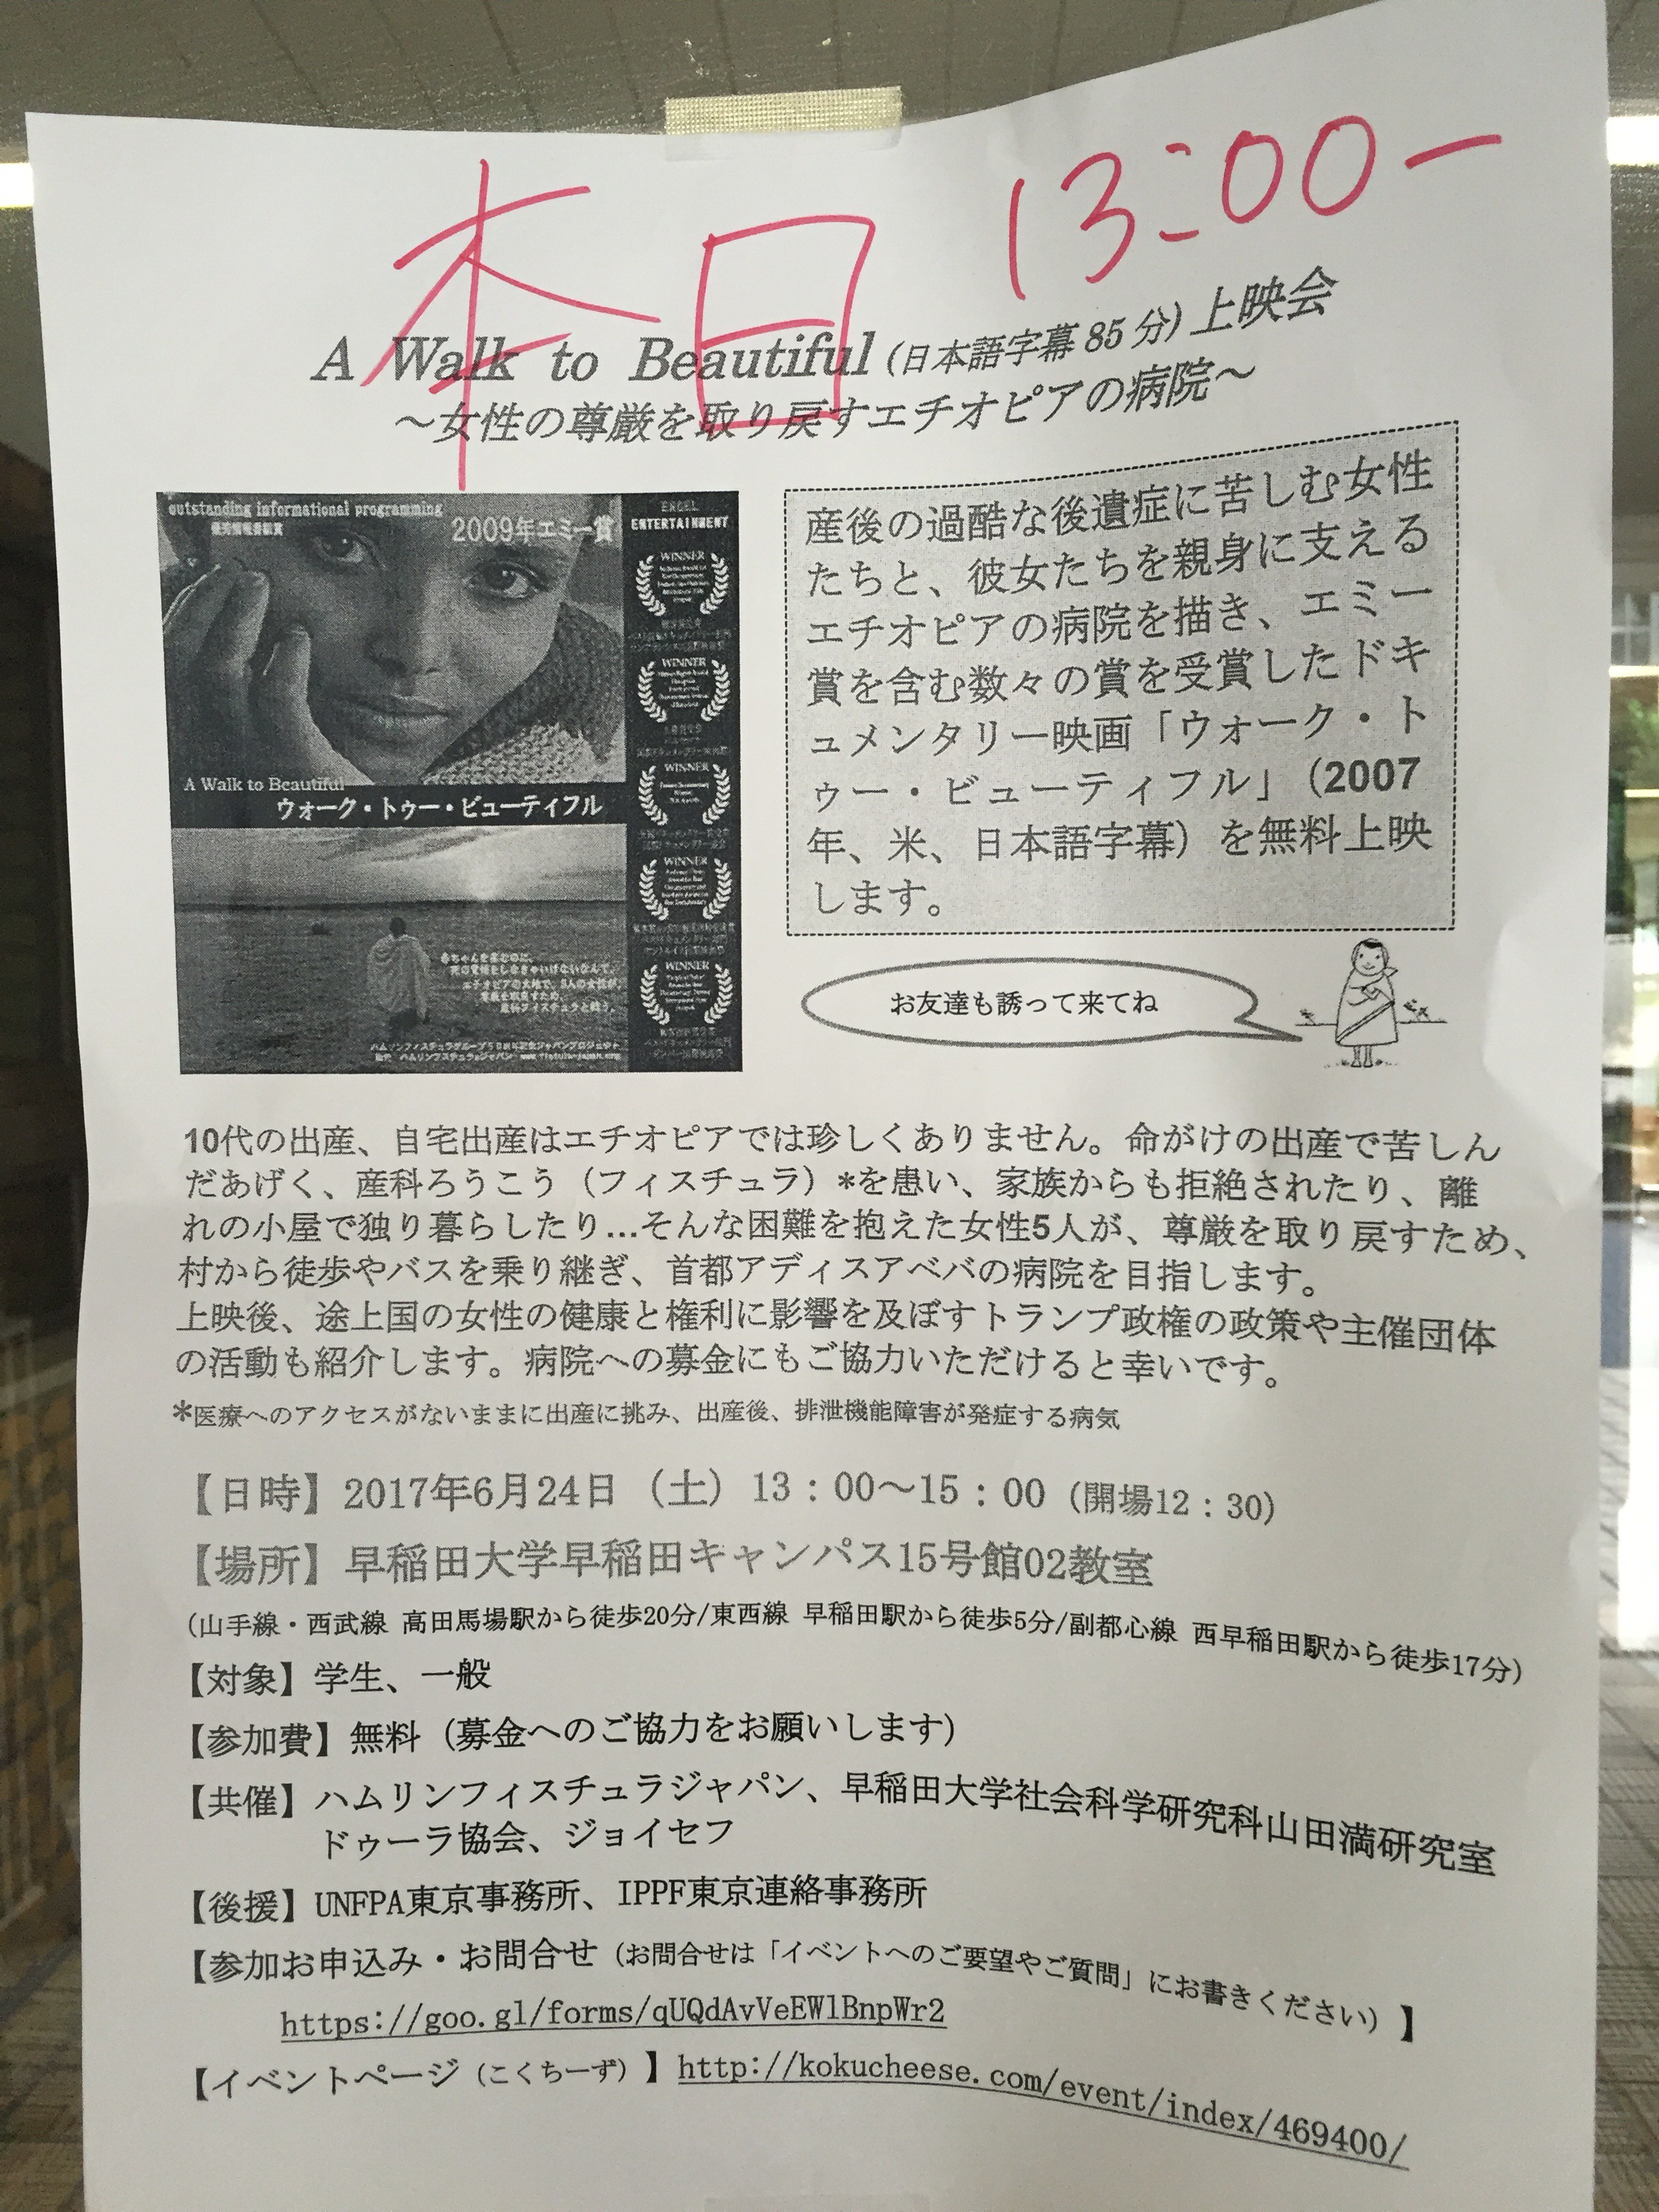 本日 13:00ー
A Walk to Beautiful (日本語字幕 85 分) 上映会
～女性の尊厳を取り戻すエチオピアの病院～
outstanding informational programming
2009年エミー賞
ENTERTAINMENT
WINNER
WINNER
WINNER
WINNER
WINNER
A Walk to Beautiful
ウォーク・トゥー・ビューティフル
産後の過酷な後遺症に苦しむ女性
たちと、彼女たちを親身に支える
エチオピアの病院を描き、エミー
賞を含む数々の賞を受賞したドキ
ュメンタリー映画「ウォーク・ト
ゥー・ビューティフル」（2007
年、米、日本語字幕）を無料上映
します。
お友達も誘って来てね
10代の出産、自宅出産はエチオピアでは珍しくありません。命がけの出産で苦しん
だあげく、産科ろうこう（フィスチュラ）*を患い、家族からも拒絶されたり、離
れの小屋で独り暮らしたり…そんな困難を抱えた女性5人が、尊厳を取り戻すため、
村から徒歩やバスを乗り継ぎ、首都アディスアベバの病院を目指します。
上映後、途上国の女性の健康と権利に影響を及ぼすトランプ政権の政策や主催団体
の活動も紹介します。病院への募金にもご協力いただけると幸いです。
*医療へのアクセスがないままに出産に挑み、出産後、排泄機能障害が発症する病気
【日時】2017年6月24日（土）13：00～15：00（開場12：30）
【場所】早稲田大学早稲田キャンパス15号館02教室
（山手線・西武線 高田馬場駅から徒歩20分/東西線 早稲田駅から徒歩5分/副都心線 西早稲田駅から徒歩17分）
【対象】学生、一般
【参加費】無料（募金へのご協力をお願いします）
【共催】ハムリンフィスチュラジャパン、早稲田大学社会科学研究科山田満研究室
ドゥーラ協会、ジョイセフ
【後援】UNFPA東京事務所、IPPF東京連絡事務所
【参加お申込み・お問合せ（お問合せは「イベントへのご要望やご質問」にお書きください）】
https://goo.gl/forms/qUQdAvVeEWlBnpWr2
【イベントページ（こくちーず）】http://kokucheese.com/event/index/469400/